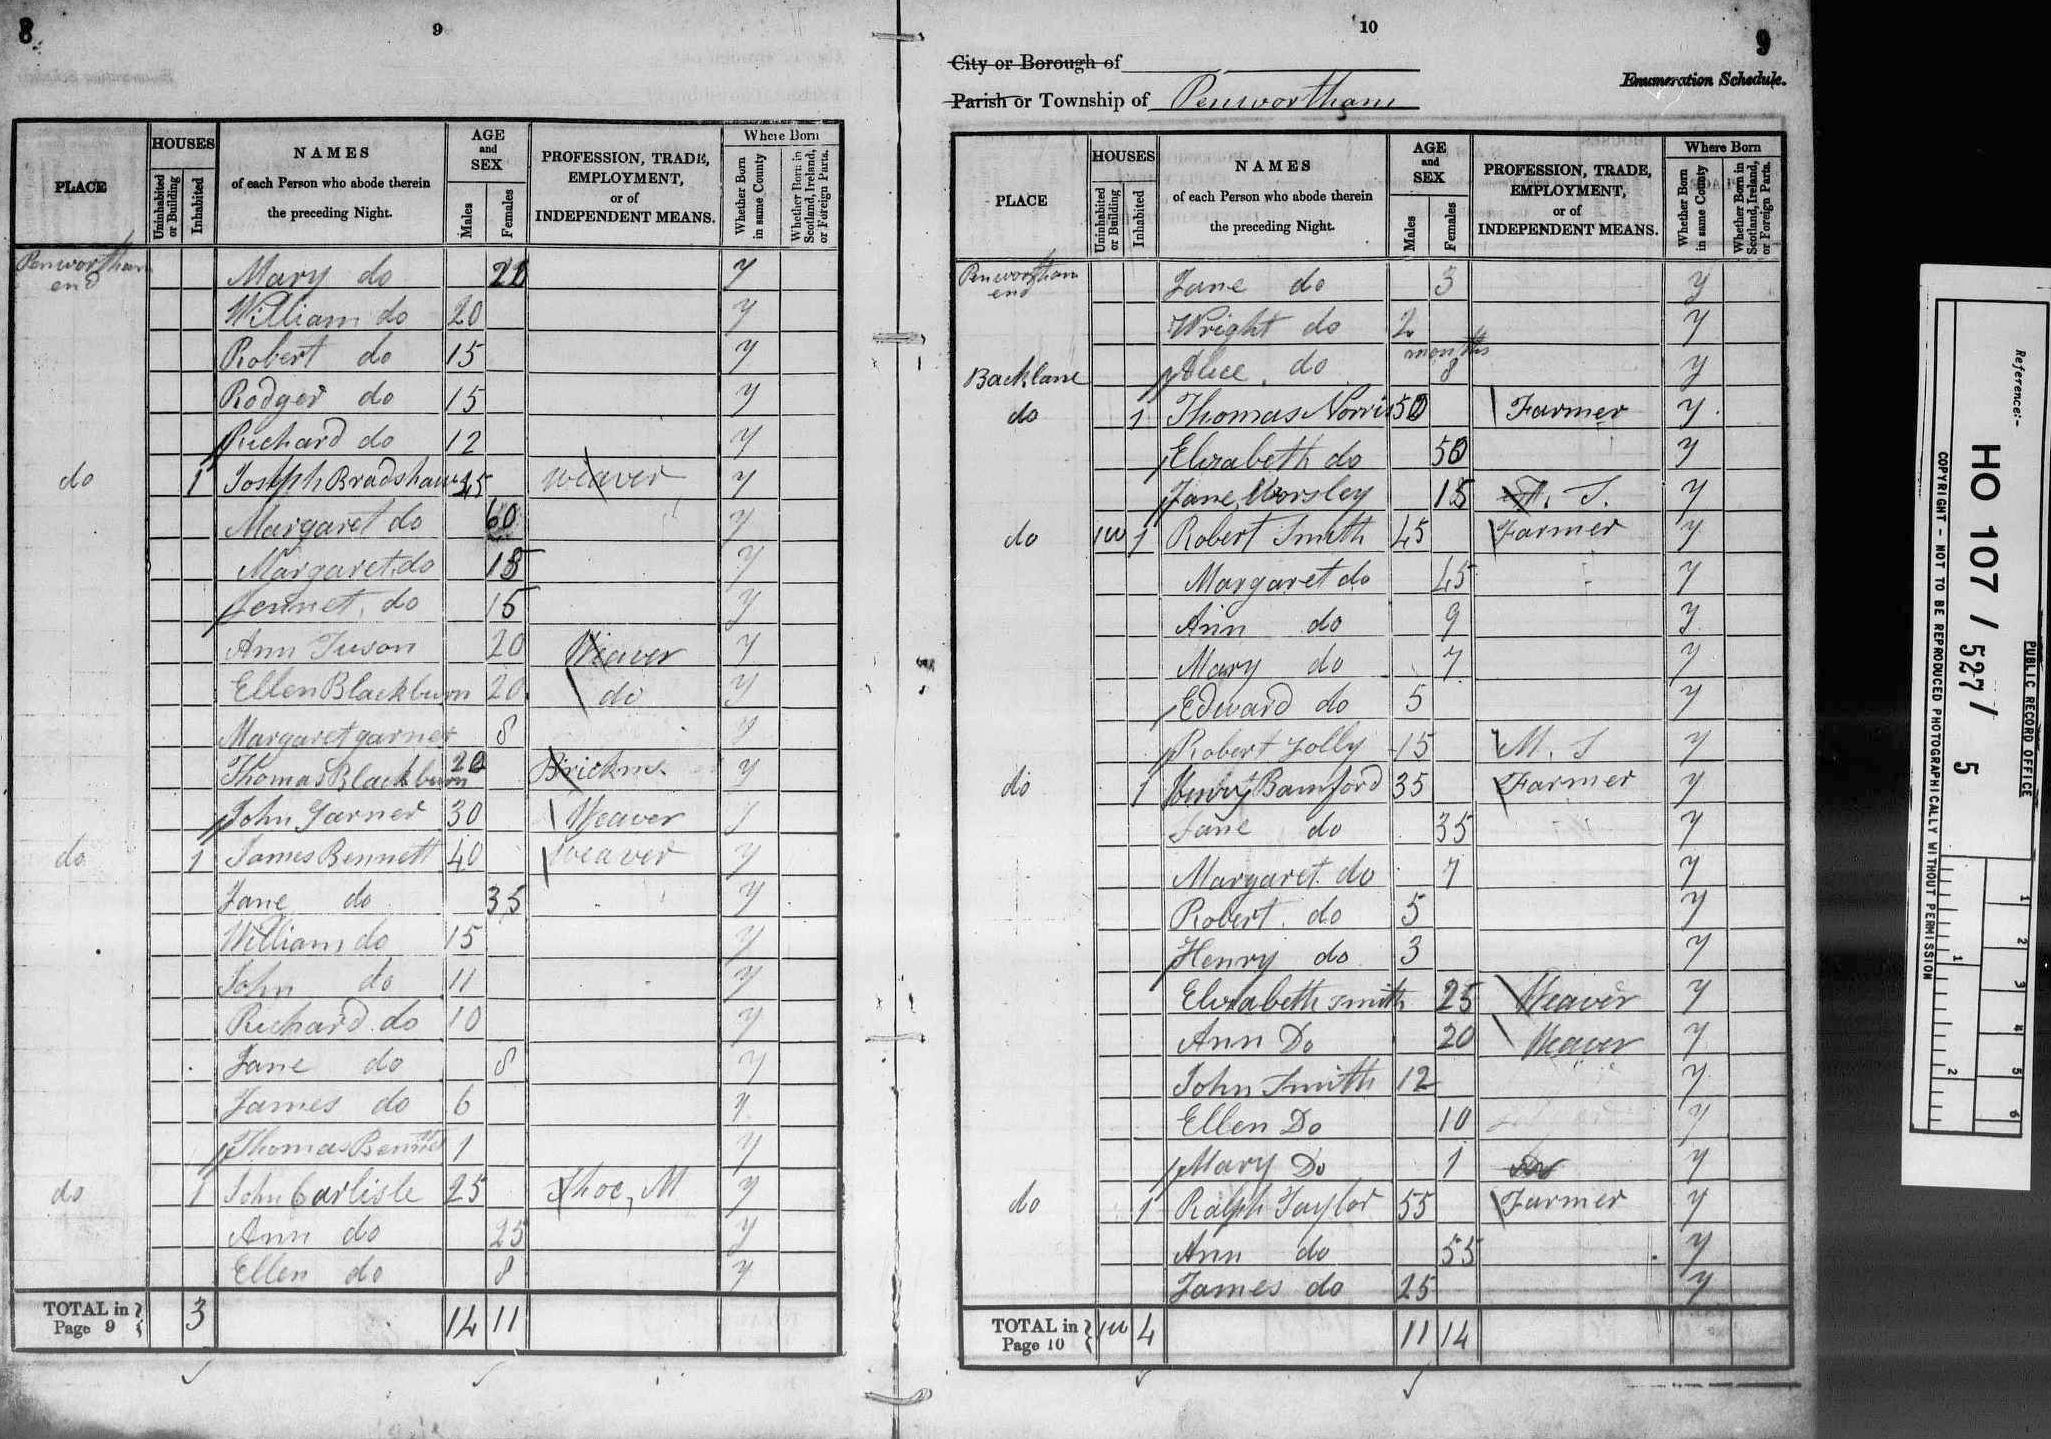 8
9
PLACE
HOUSES
Uninhabited or Building
Inhabited
NAMES
of each Person who abode therein
the preceding Night.
AGE
and
SEX
Males
Females
PROFESSION, TRADE,
EMPLOYMENT,
or of
INDEPENDENT MEANS.
Where Born
Whether Born in same County
Whether Born in Scotland, Ireland, or Foreign Parts.
Penwortham end Mary do y
William do 20 y
Robert do 15 y
Rodger do 15 y
Richard do 12 y
do 1 Joseph Bradshaw weaver y
Margaret do 60 y
Margaret do 15 y
Jennet do 15 y
Ann Tuson 20 Weaver y
Ellen Blackburn 20 do y
Margaret garner 8 y
Thomas Blackburn 20 Brickm. y
John Garner 30 Weaver y
do 1 James Bennett 40 weaver y
Jane do 35 y
William do 15 y
John do 11 y
Richard do 10 y
Jane do 8 y
James do 6 y
Thomas Bennett 1 y
do 1 John Carlisle 25 Shoe, M y
Ann do 25 y
Ellen do 8 y
TOTAL in Page 9 3 14 11
10
9
City or Borough of
Enumeration Schedule.
Parish or Township of Penwortham
PLACE
HOUSES
Uninhabited or Building
Inhabited
NAMES
of each Person who abode therein
the preceding Night.
AGE
and
SEX
Males
Females
PROFESSION, TRADE,
EMPLOYMENT,
or of
INDEPENDENT MEANS.
Where Born
Whether Born in same County
Whether Born in Scotland, Ireland, or Foreign Parts.
Penwortham end Jane do 3 y
Wright do 2 y
Back lane Alice do months 8 y
do 1 Thomas Norris 50 Farmer y
Elizabeth do 50 y
Jane Worsley 15 F. S. y
do 1u 1 Robert Smith 45 Farmer y
Margaret do 45 y
Ann do 9 y
Mary do 7 y
Edward do 5 y
Robert Jolly 15 M. S y
do 1 Bamford 35 Farmer y
Jane do 35 y
Margaret do 7 y
Robert do 5 y
Henry do 3 y
Elizabeth smith 25 Weaver y
Ann Do 20 Weaver y
John Smith 12 y
Ellen Do 10 y
Mary Do 1 y
do 1 Ralph Taylor 55 Farmer y
Ann do 55 y
James do 25 y
TOTAL in Page 10 1u 4 11 14
Reference:-
HO 107 / 527 / 5
PUBLIC RECORD OFFICE
COPYRIGHT - NOT TO BE REPRODUCED PHOTOGRAPHICALLY WITHOUT PERMISSION
1 2 3 4 5 6
1 2